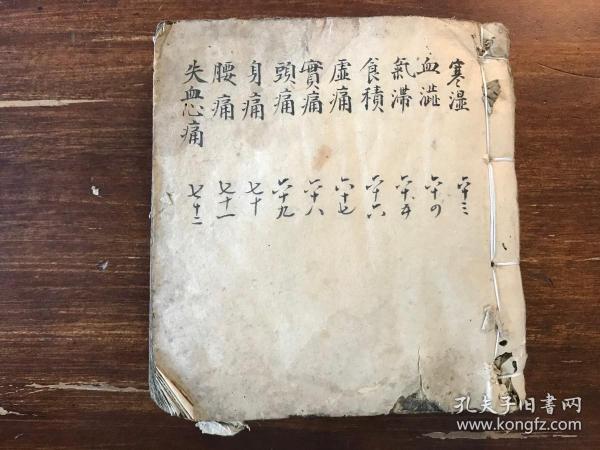 寒湿 六十三
血澁 六十四
氣滞 六十五
食積 六十六
虚痛 六十七
實痛 六十八
頭痛 六十九
身痛 七十
腰痛 七十一
失血心痛 七十二
孔夫子旧書网
www.kongfz.com